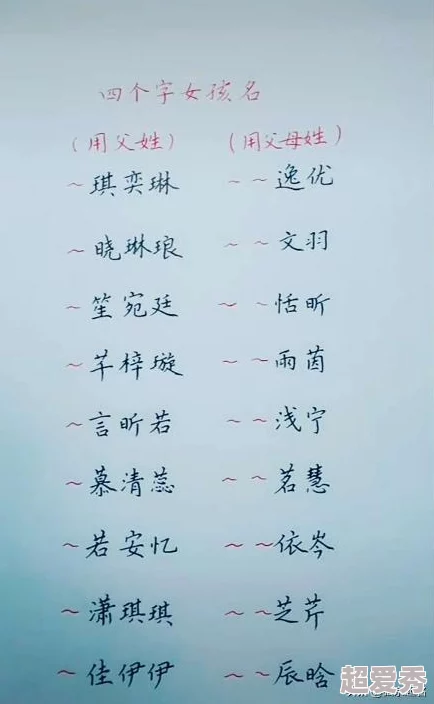 四个字女孩名
（用父姓） （用父母姓）
～琪奕琳 ～～逸优
～晓琳琅 ～～文羽
～笙宛廷 ～～恬昕
～芊梓璇 ～～雨茵
～言昕若 ～～浅宁
～慕清蕊 ～～茗慧
～若安忆 ～～依岑
～潇琪琪 ～～芝芹
～佳伊伊 ～～辰晗
超爱秀